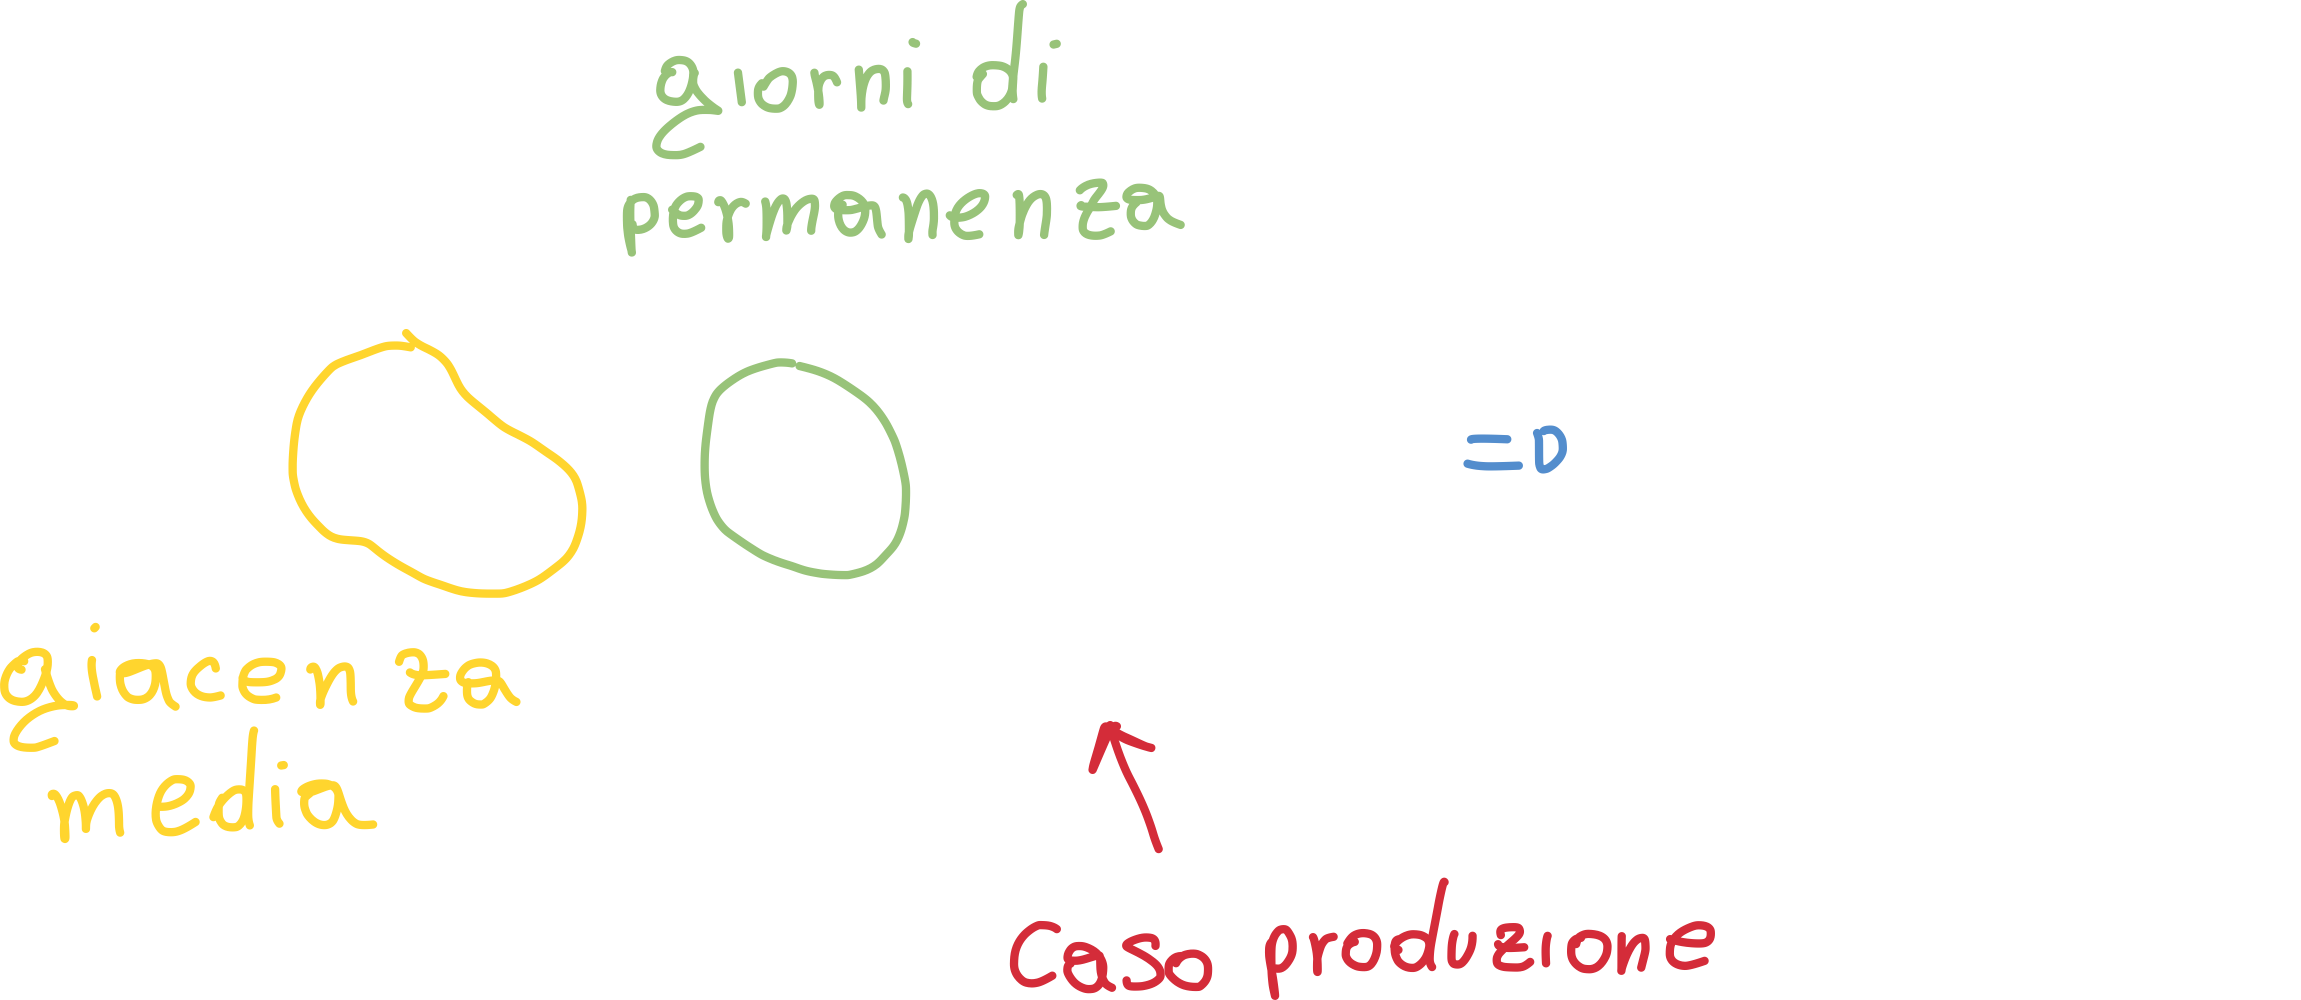 giorni di
permanenza
=D
giacenza
media
Caso produzione